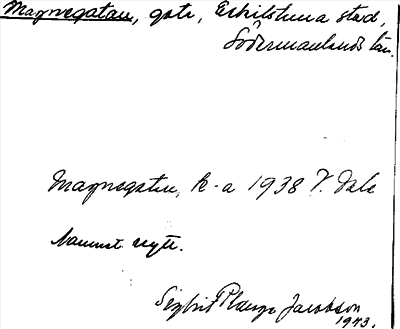 Magnegatan, gata, Eskilstuna stad,
Södermanlands län.
Magnegatan, k-a 1938 V. Dala
Namnet nytt.
Sigbrit Plange Jacobson
1943.